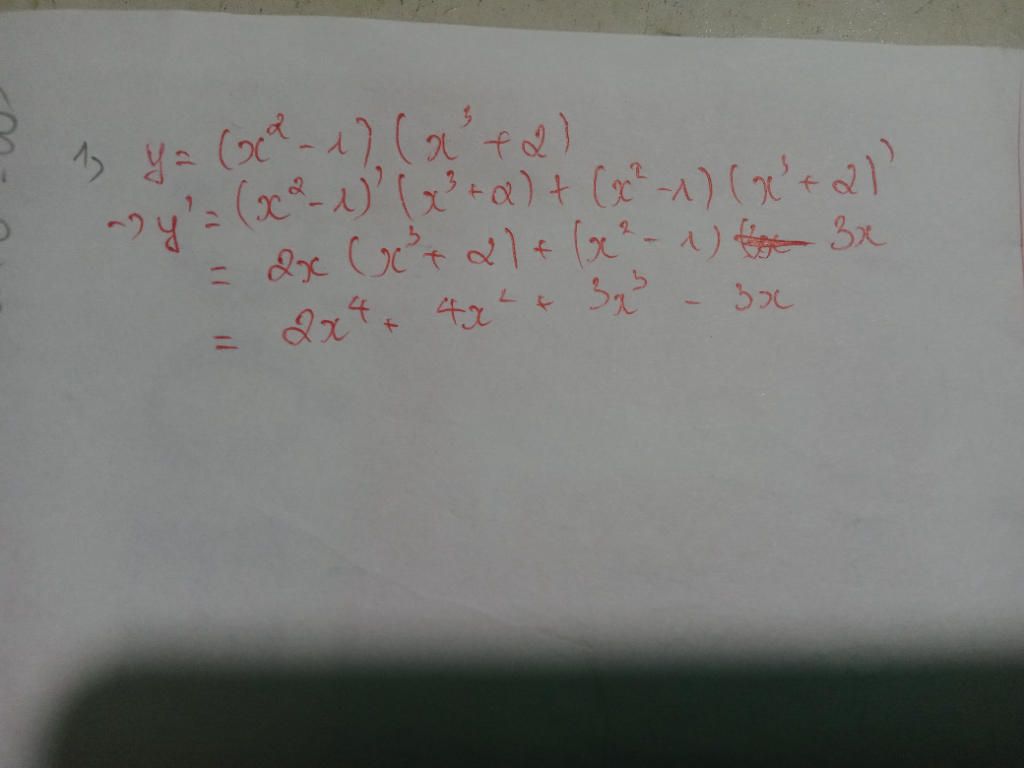 1) y = (x² - 1) (x³ + 2)
→ y' = (x² - 1)' (x³ + 2) + (x² - 1) (x³ + 2)'
= 2x (x³ + 2) + (x² - 1) 3x
= 2x⁴ + 4x² + 3x³ - 3x